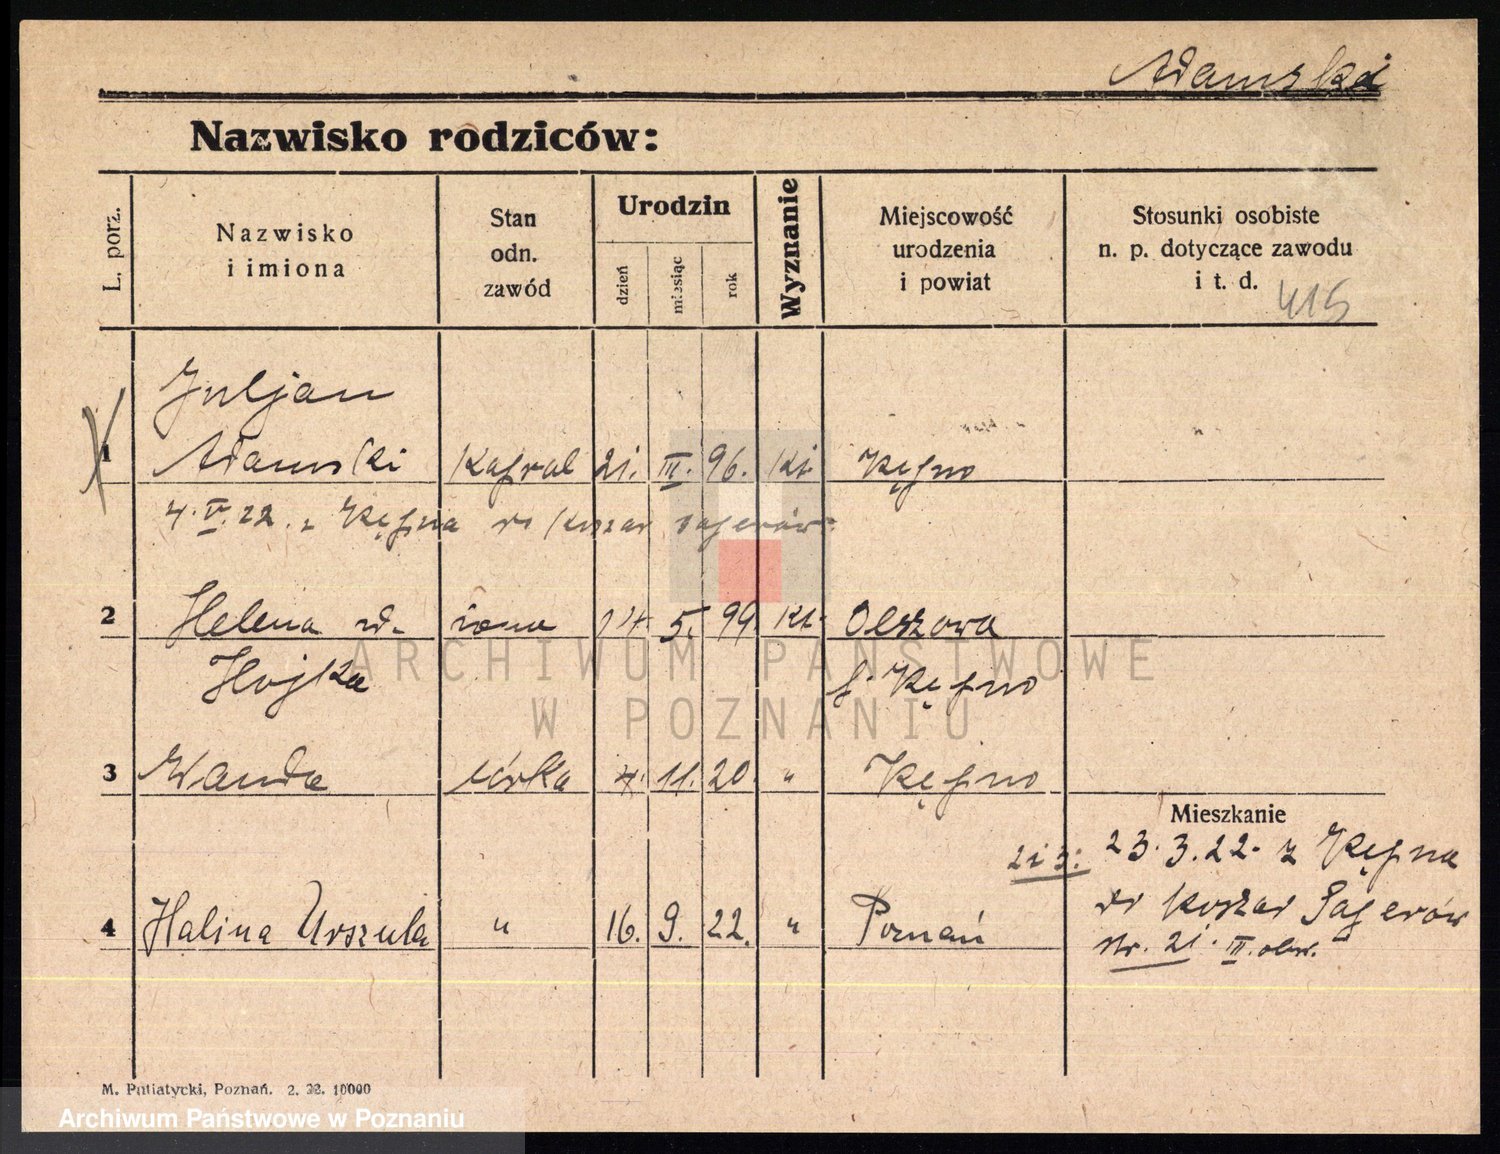 Adamski
Nazwisko rodziców:
L. porz.
Nazwisko
i imiona
Stan
odn.
zawód
Urodzin
dzień
miesiąc
rok
Wyznanie
Miejscowość
urodzenia
i powiat
Stosunki osobiste
n. p. dotyczące zawodu
i t. d.
415
Juljan
1 Adamski Kapral 21. III. 96. kt. Kępno
4. V. 22. z Kępna do Koszar Jagerów
2 Helena ud. żona 14. 5. 99 kt. Olszowa
Hojka p. Kępno
3 Wanda córka 4. 11. 20. " Kępno
Mieszkanie
2 i 3: 23. 3. 22. z Kępna
do Koszar Jagerów
4 Halina Urszula " 16. 9. 22. " Poznań
nr. 21. III.
M. Putiatycki, Poznań. 2. 22. 10000
ARCHIWUM PAŃSTWOWE
W POZNANIU
Archiwum Państwowe w Poznaniu